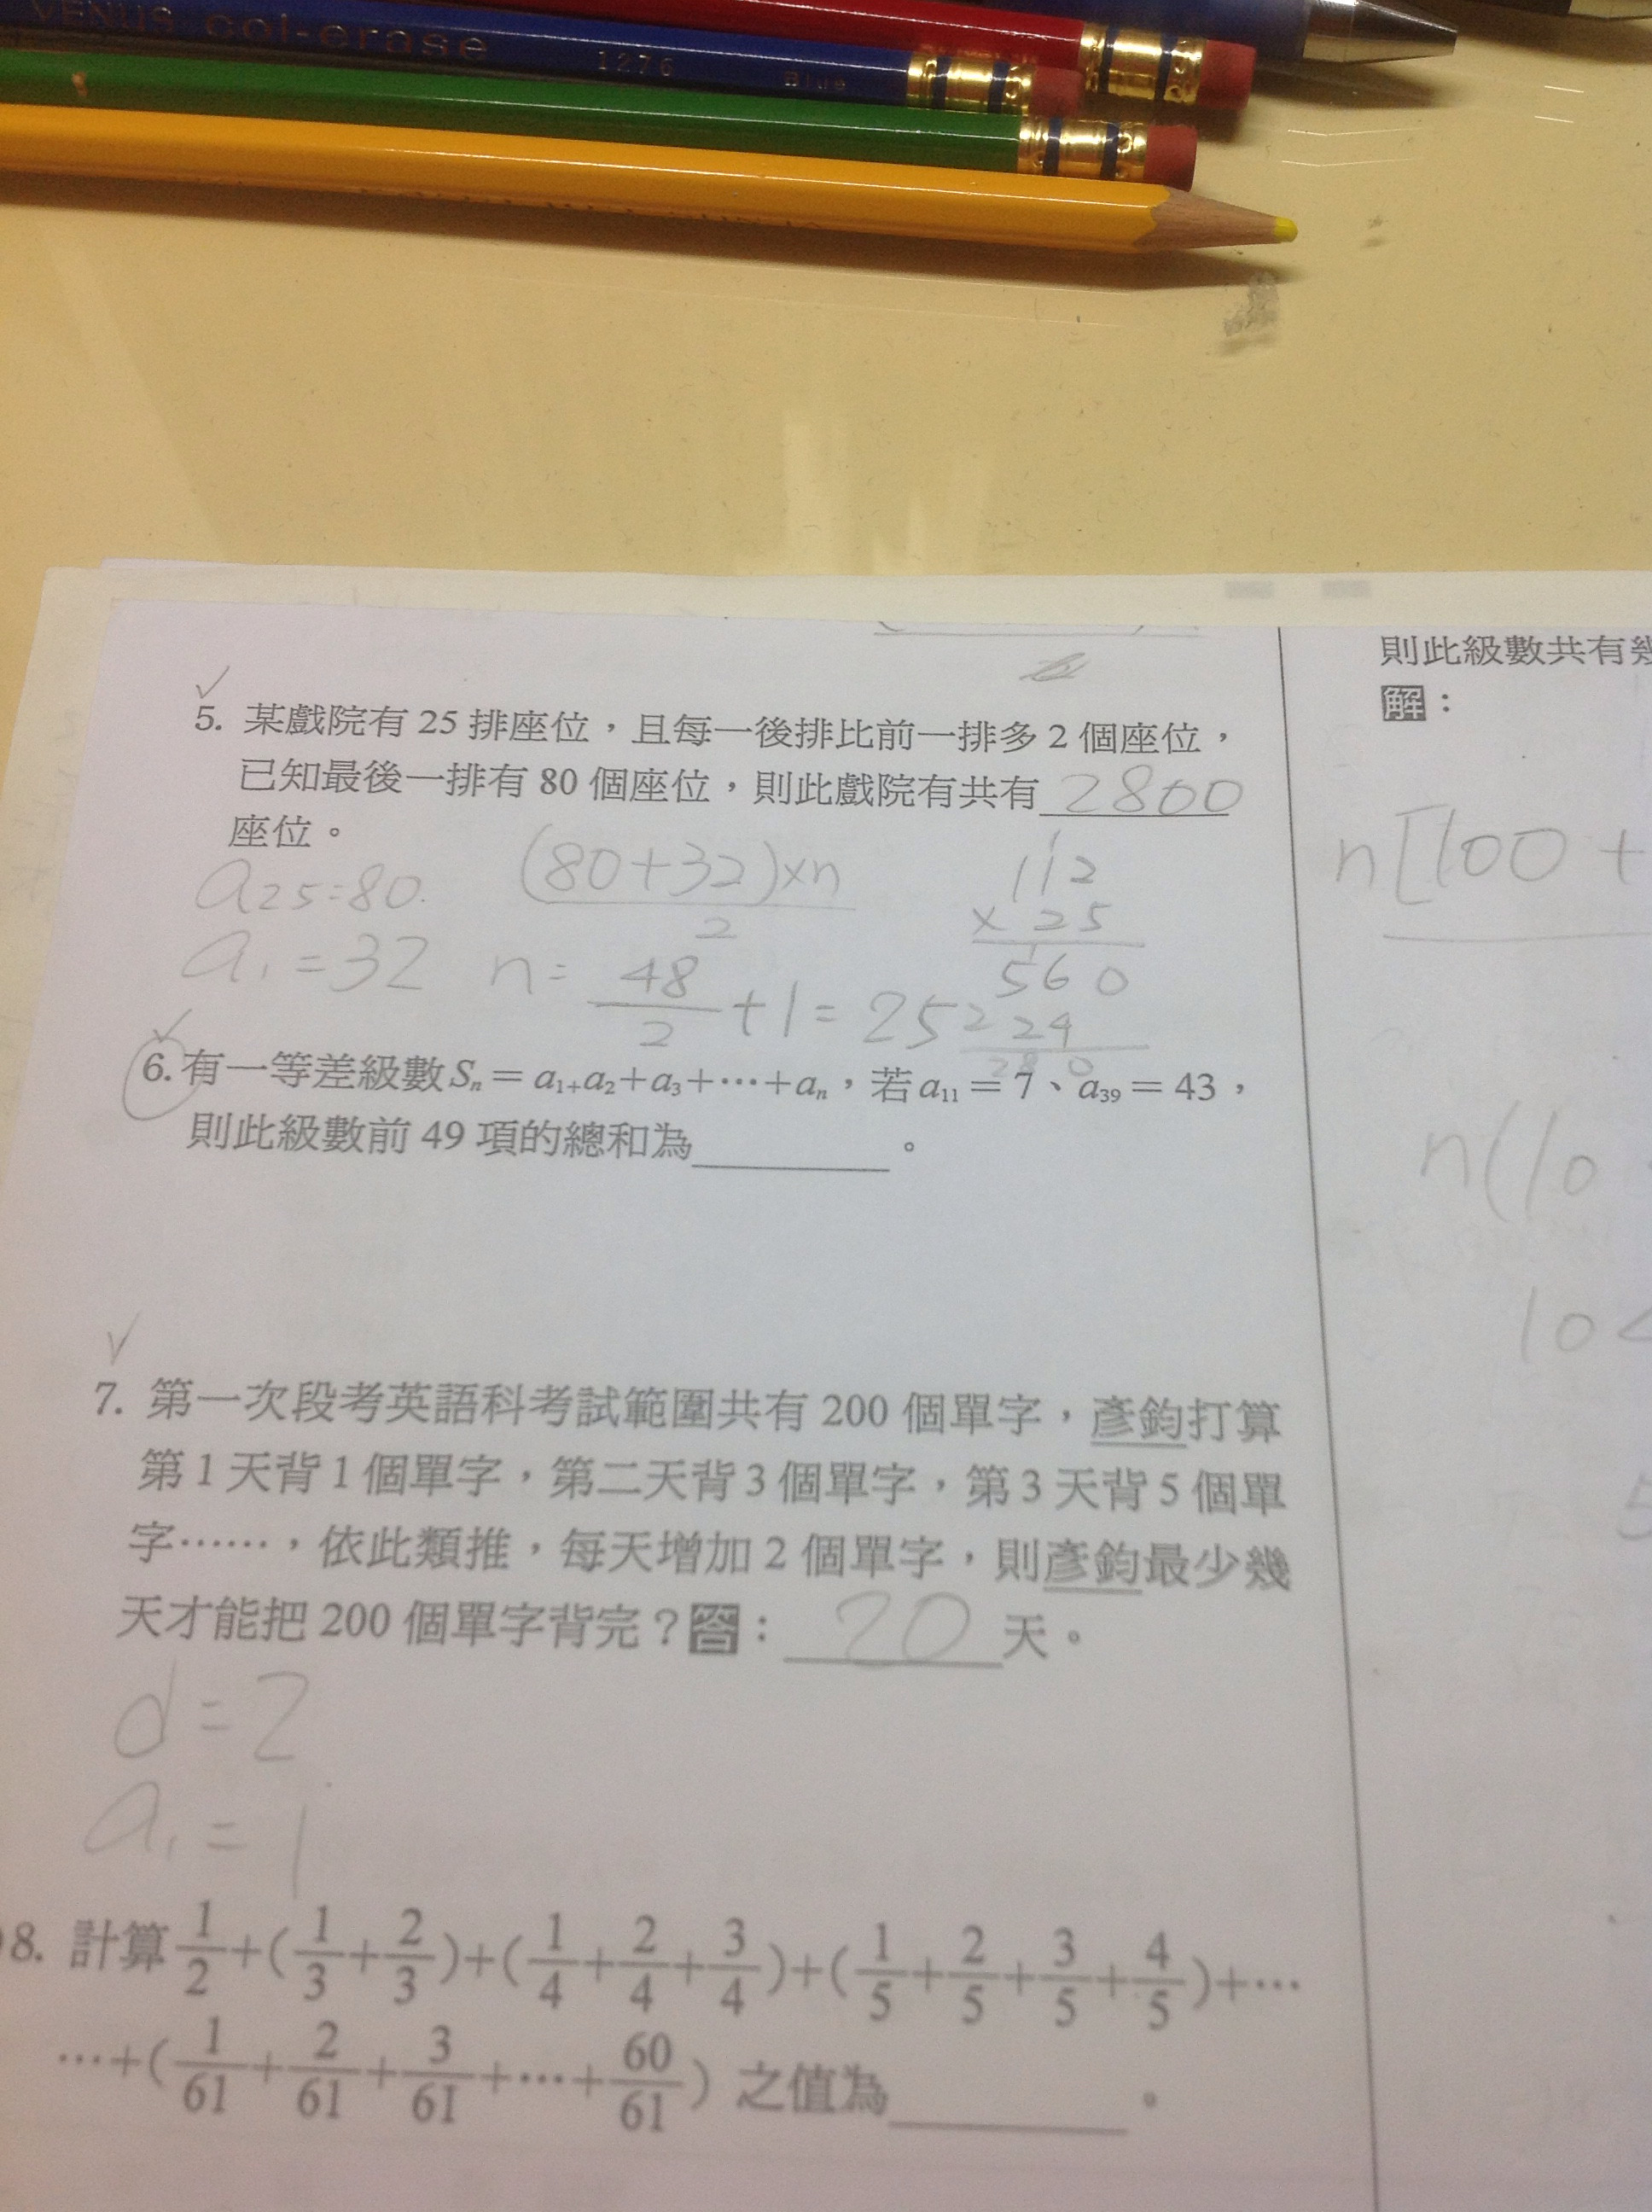 VENUS col-erase 1276 Blue
5. 某戲院有 25 排座位，且每一後排比前一排多 2 個座位，
已知最後一排有 80 個座位，則此戲院有共有 2800
座位。
a25=80.
a1=32
(80+32)×n
2
n=
48
2
+1=25
112
×25
560
224
280
6. 有一等差級數 Sn＝a1+a2＋a3＋…＋an，若 a11＝7、a39＝43，
則此級數前 49 項的總和為________。
7. 第一次段考英語科考試範圍共有 200 個單字，彥鈞打算
第 1 天背 1 個單字，第二天背 3 個單字，第 3 天背 5 個單
字……，依此類推，每天增加 2 個單字，則彥鈞最少幾
天才能把 200 個單字背完？答： 20 天。
d=2
a1=1
8. 計算 1/2＋(1/3＋2/3)＋(1/4＋2/4＋3/4)＋(1/5＋2/5＋3/5＋4/5)＋…
…＋(1/61＋2/61＋3/61＋…＋60/61) 之值為________。
則此級數共有幾
解：
n[100+
n(10
10
5